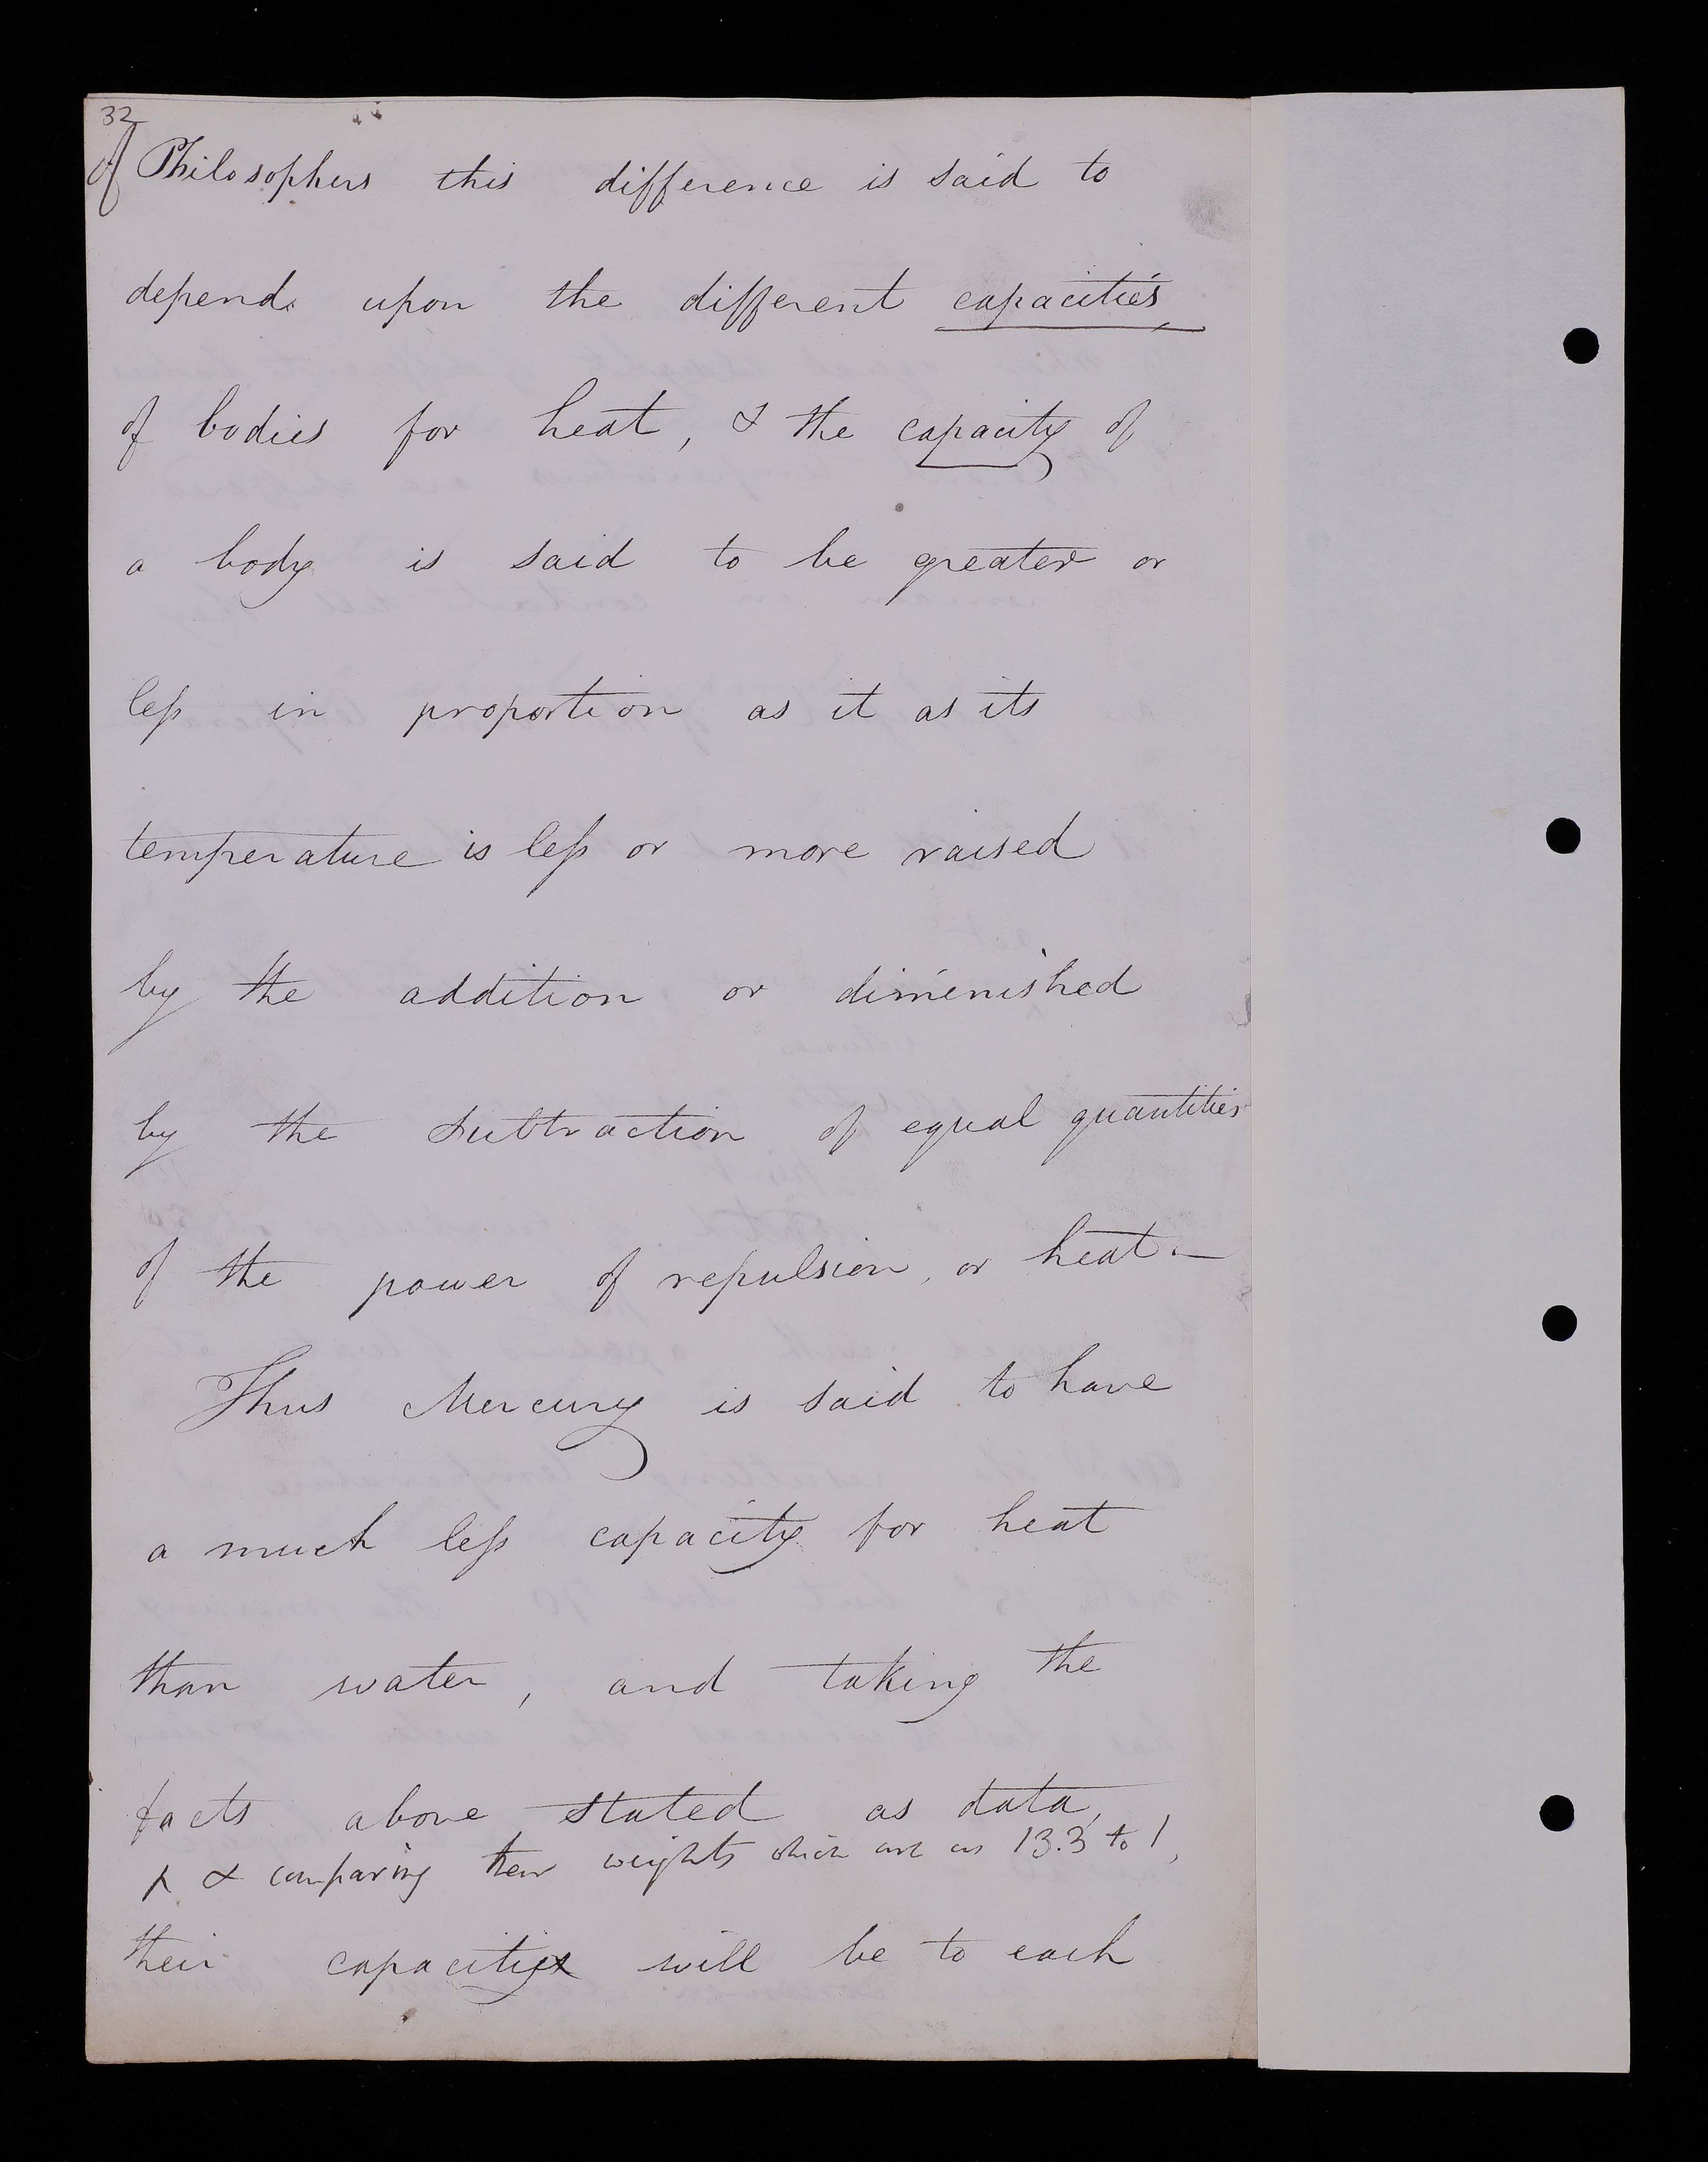 32
of Philosophers this difference is said to
depend upon the different capacities
of bodies for heat, & the capacity of
a body is said to be greater or
less in proportion as it as its
temperature is less or more raised
by the addition or dimenished
by the subtraction of equal quantities
of the power of repulsion, or heat.—
Thus Mercury is said to have
a much less capacity for heat
than water, and taking the
facts above stated as data,
& comparing their weights which are as 13.3 to 1,
their capacities will be to each